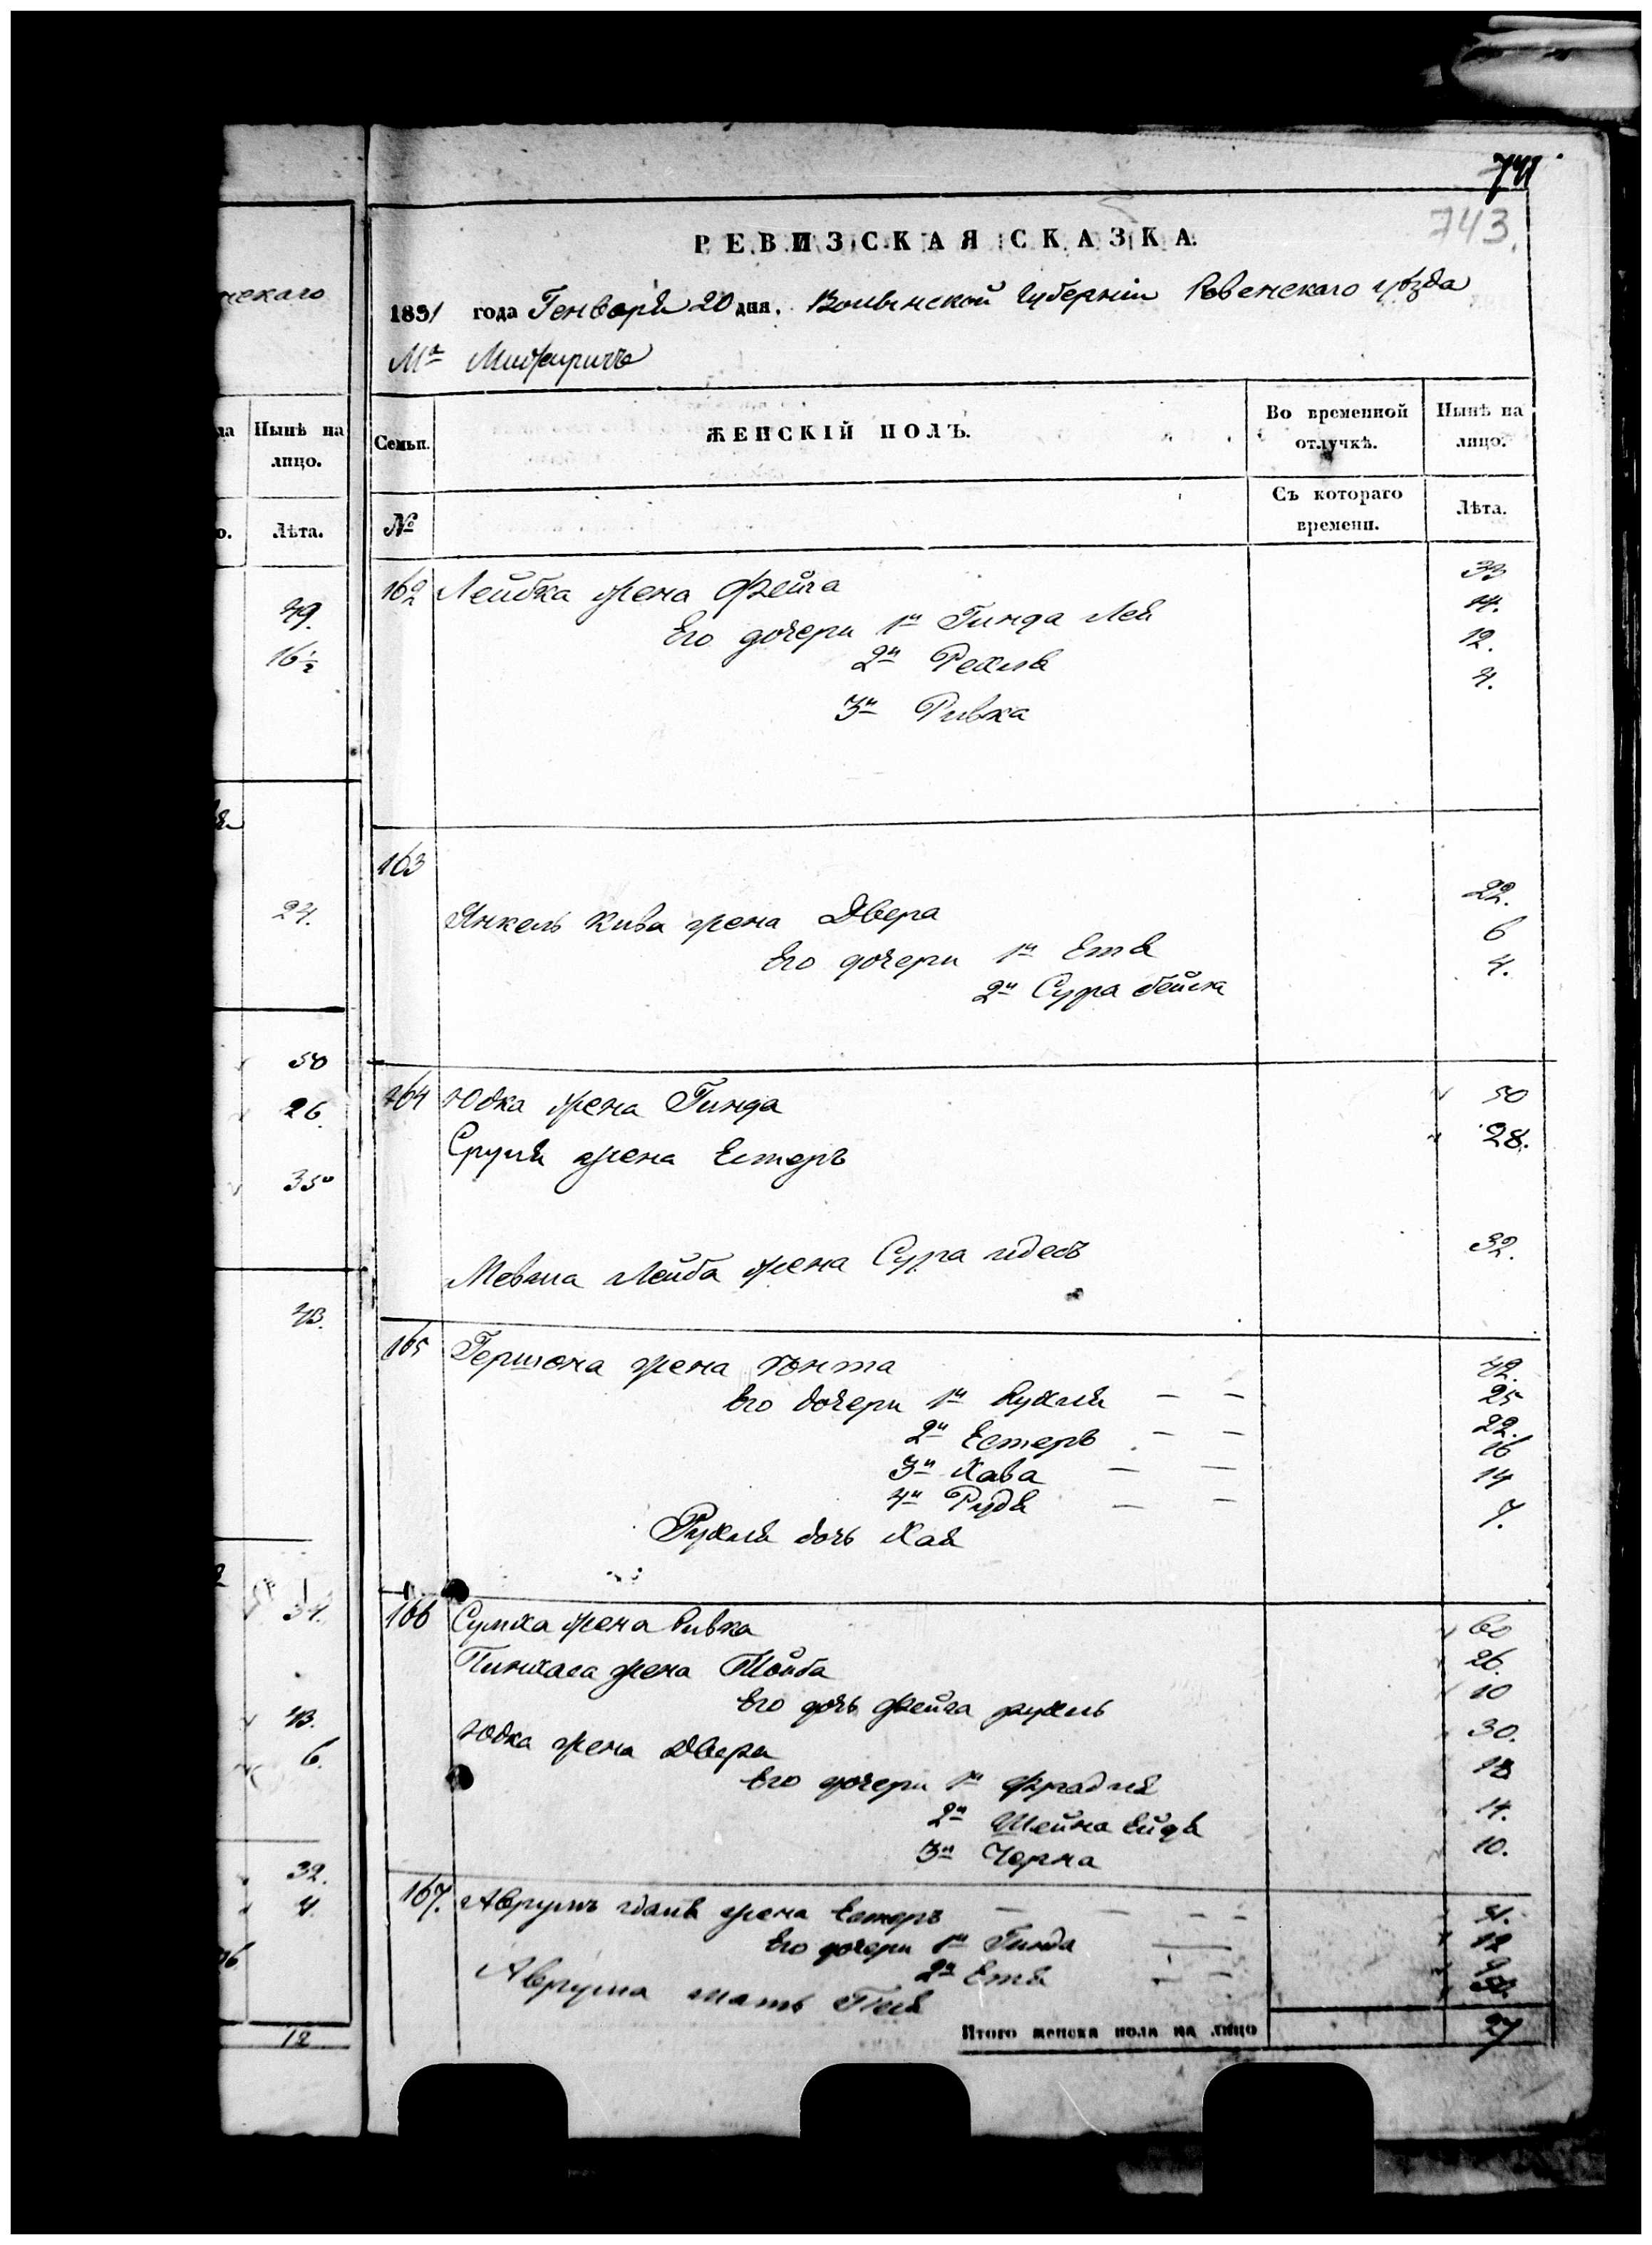 741
743.
РЕВИЗСКАЯ СКАЗКА.
1851 года Генваря 20 дня. Волынской Губернiи Ровенскаго уѣзда
Мᵃ Межирича
нскаго
Нынѣ на лицо.
Лѣта.
49.
16½
24.
50
26.
35
43.
34.
43.
6.
32.
4.
12
Семьи.
ЖЕНСКIЙ ПОЛЪ.
Во временной отлучкѣ.
Нынѣ на лицо.
№
Съ котораго времени.
Лѣта.
162 Лейбка жена Фейга 33
Его дочери 1я Гинда Лея 14.
2я Рехля 12.
3я Ривка 4.
163
Янкель Кива жена Двера 22.
Его дочери 1я Етя 6
2я Сура бейла 4.
164 Юдка жена Гинда 50
Сруля жена Естеръ 28.
Мевша Лейба жена Сура идесъ 32.
165 Гершона жена Юнта 42.
Его дочери 1я Рухля — — 25
2я Естеръ — — 22.
3я Хава — — 16
4я Рудя — — 14
Рухля дочь Хая 7.
166 Сумха жена Ривка 60
Пинхаса жена Тойба 26.
Его дочь Фейга рухль 10
Юдка жена Двера 30.
Его дочери 1я Фрадля 18
2я Шейна Ейдя 14.
3я Черна 10.
167. Аврумъ жена Естеръ — — — —
Его дочери 1я Гинда — 12
2я Етя — —
Аврума мать Песя
Итого женска пола на лицо 27